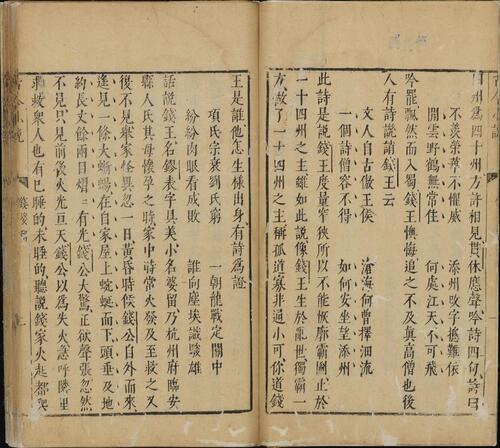 四州爲四十州方許相見貫休應聲吟詩四句詩曰
不羨榮華不懼威　添州改字總難依
閒雲野鶴無常住　何處江天不可飛
吟罷飄然而入蜀錢王懊悔追之不及眞高僧也後
人有詩譏誚錢王云
文人自古傲王侯　滄海何曾擇細流
一個詩僧容不得　如何安坐望添州
此詩是說錢王度量窄狹所以不能恢廓霸圖止於
一十四州之主雖如此說像錢王生於亂世獨霸一
方做了一十四州之主稱孤道寡非通小可你道錢
王是誰他怎生樣出身有詩爲證
項氏宗衰劉氏窮　一朝龍戰定關中
紛紛肉眼看成敗　誰向塵埃識駿雄
話說錢王名鏐表字具美小名婆留乃杭州府臨安
縣人氏其母懷孕之時家中時常火發及至救之又
復不見舉家怪異忽一日黃昏時候錢公自外而來
遙見一條大蜥蜴在自家屋上蜿蜒而下頭垂及地
約長丈餘兩目熠熠有光錢公大驚正欲聲張忽然
不見只見前後火光亘天錢公以爲失火急呼隣里
救撲衆人也有已睡的未睡的聽說錢家火起都爬